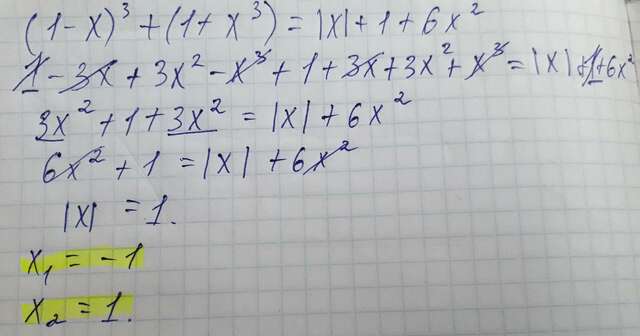 (1-x)³+(1+x³)=|x|+1+6x²
1-3x+3x²-x³+1+3x+3x²+x³=|x|+1+6x²
3x²+1+3x²=|x|+6x²
6x²+1=|x|+6x²
|x|=1.
x₁=-1
x₂=1.